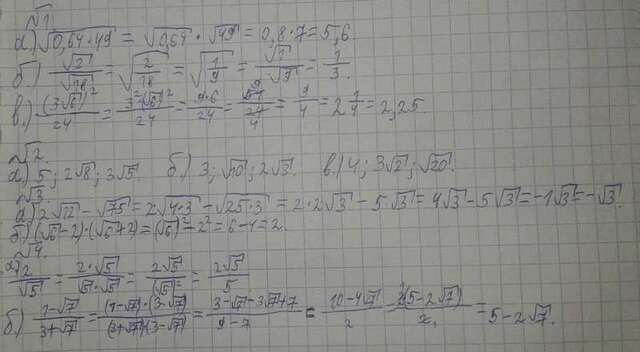 √1
а) √0,64·49 = √0,64 · √49 = 0,8·7 = 5,6.
б) √2/√18 = √(2/18) = √(1/9) = √1/√9 = 1/3.
в.) (3√6)²/24 = 3²·(√6)²/24 = 9·6/24 = 54/24 = 9/4 = 2 1/4 = 2,25.
√2.
а) 5; 2√8; 3√5. б.) 3; √10; 2√3. в.) 4; 3√2; √20.
√3.
а) 2√12 - √75 = 2√4·3 - √25·3 = 2·2√3 - 5√3 = 4√3 - 5√3 = -1√3 = -√3.
б) (√6-2)·(√6+2) = (√6)² - 2² = 6-4 = 2.
√4.
а) 2/√5 = 2·√5/√5·√5 = 2√5/(√5)² = 2√5/5
б.) 1-√7/3+√7 = (1-√7)·(3-√7)/(3+√7)(3-√7) = 3-√7-3√7+7/9-7 = 10-4√7/2 = 2(5-2√7)/2 = 5-2√7.